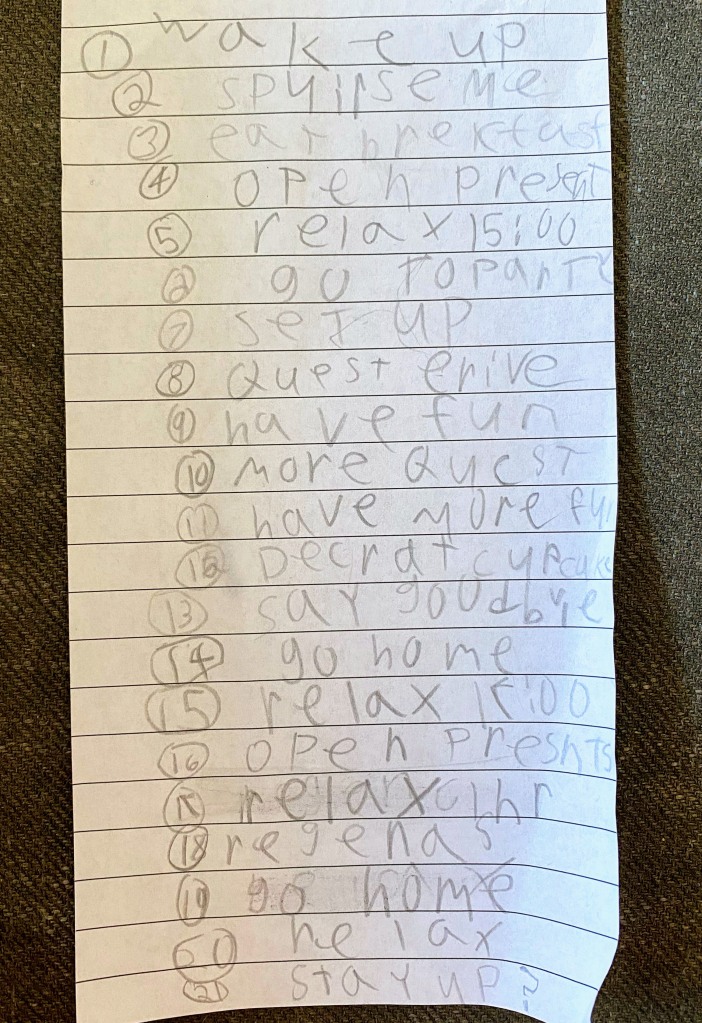 ① wake up
② spyirse me
③ eat brekfast
④ open present
⑤ relax 15:00
⑥ go to party
⑦ set up
⑧ Quest erive
⑨ have fun
⑩ more Quest
⑪ have more fun
⑫ Decrat cupcake
⑬ say goodbye
⑭ go home
⑮ relax 15:00
⑯ open preshts
relax 1hr
⑱ regenas
⑲ go home
relax
㉑ stay up?